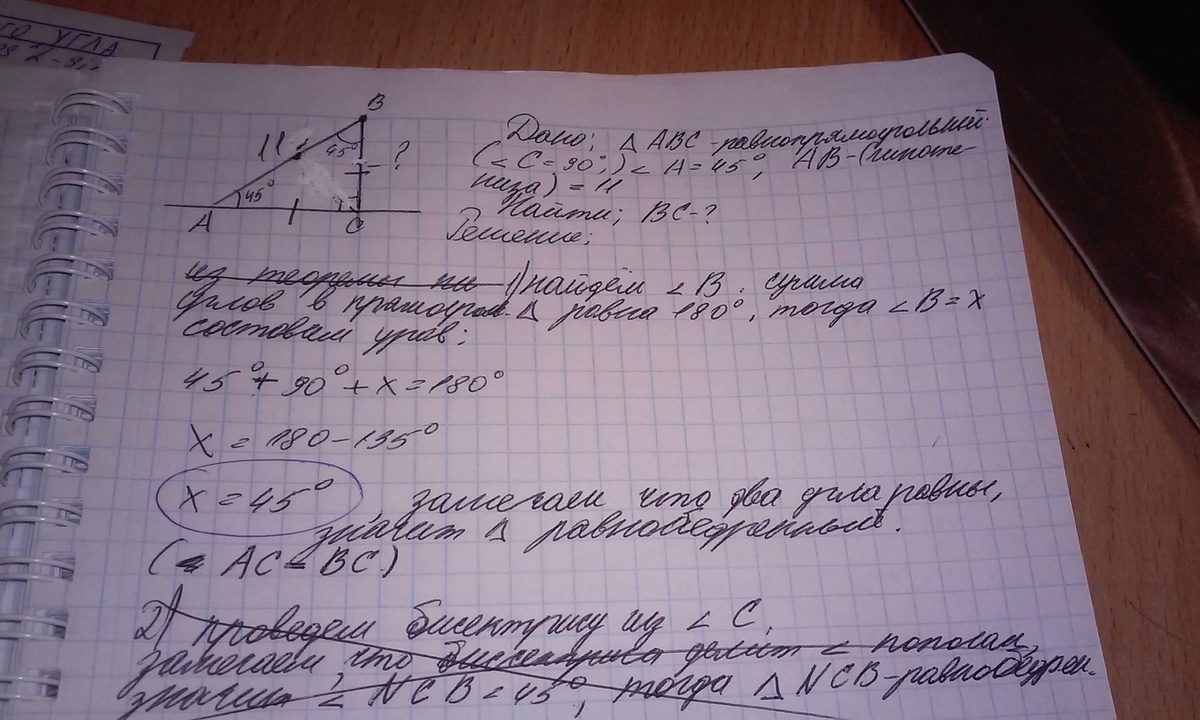 ГО УГЛА
B
11
45°
?
45°
A
C
Дано; △ ABC - равнопрямоугольный.
(∠C = 90°;) ∠A = 45°, AB - (гипоте-
нуза) = 11
Найти; BC - ?
Решение;
из теоремы 1) найдём ∠B. сумма
углов в прямоугол. △ равна 180°, тогда ∠B = x
составим урав;
45° + 90° + x = 180°
x = 180 - 135°
x = 45° , замечаем что два угла равны,
значит △ равнобедренный.
( AC = BC)
2) проведем бисектрису из ∠C,
замечаем, что биссектриса делит ∠ пополам,
значит ∠NCB = 45°, тогда △ NCB - равнобедрен-